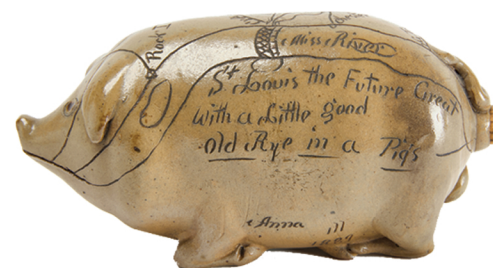 Rock I
Miss River
St Louis the Future Great
with a Little good
Old Rye in a Pig's
Anna Ill